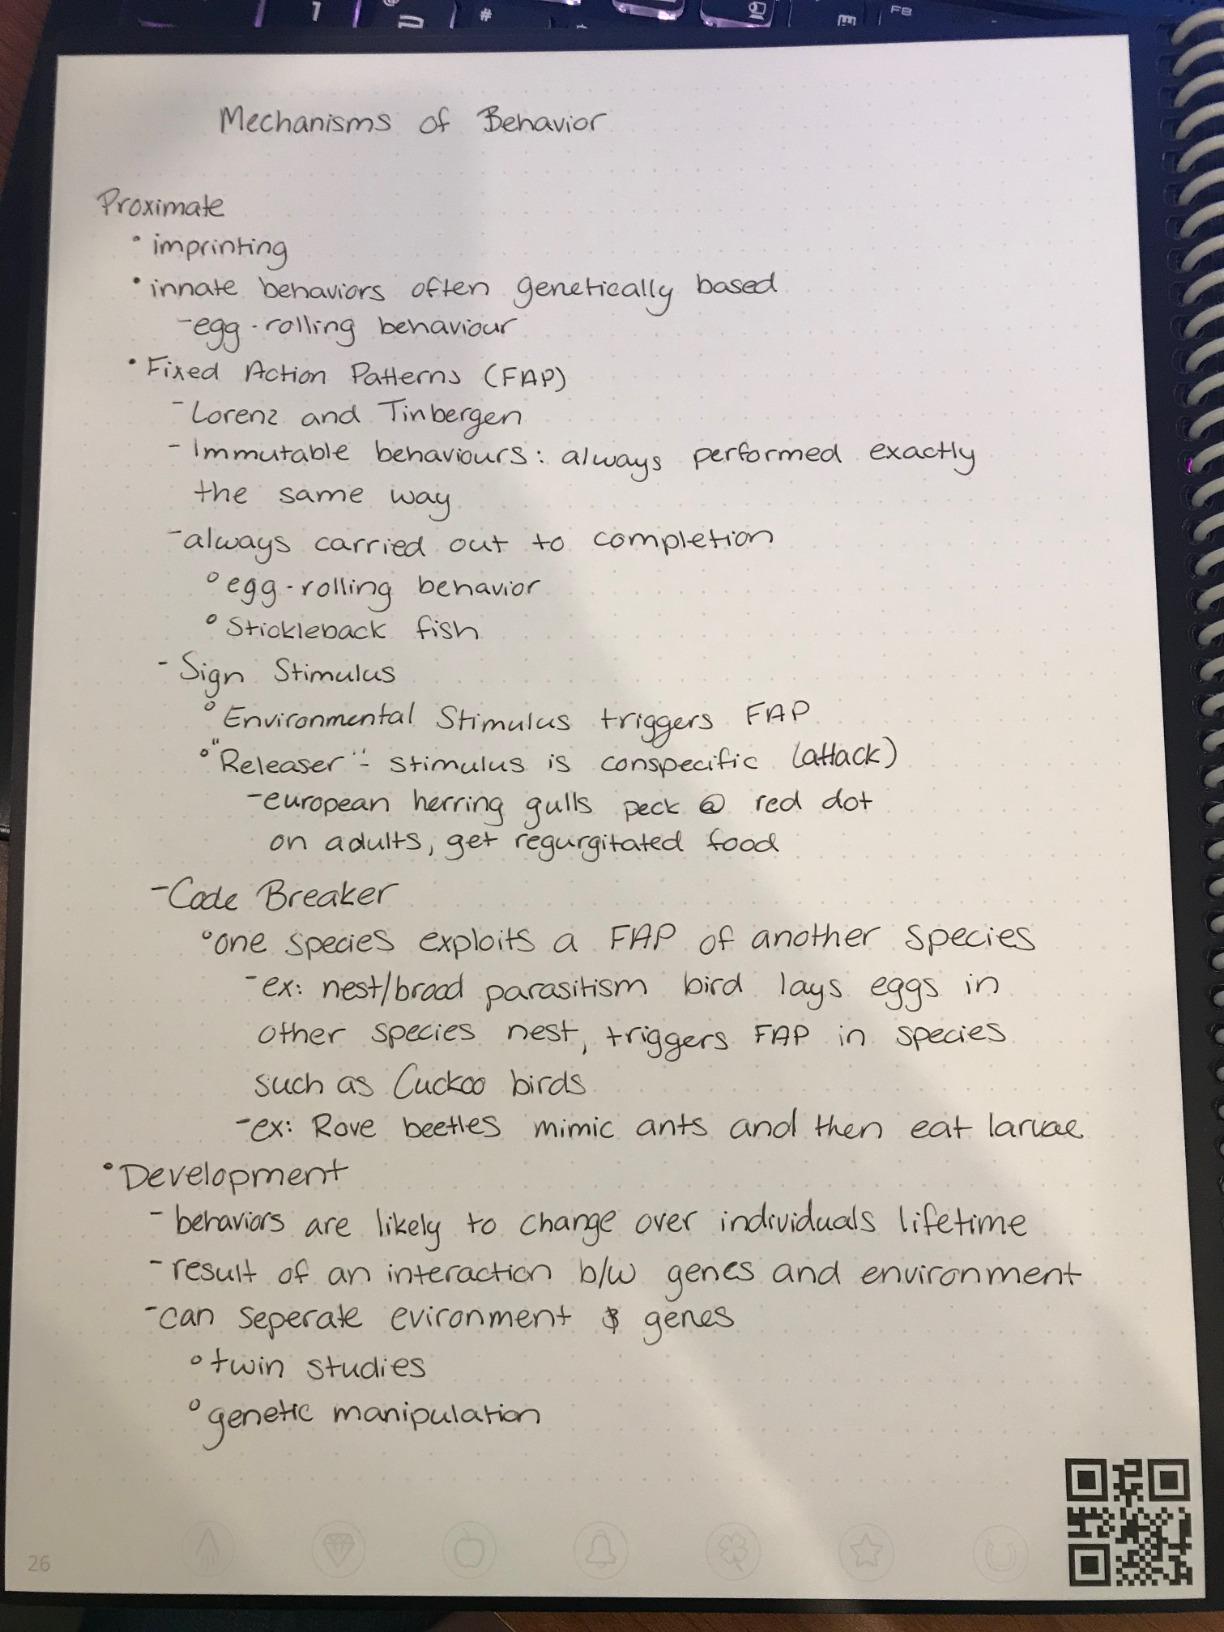 Mechanisms of Behavior
Proximate
• imprinting
• innate behaviors often genetically based
- egg-rolling behaviour
• Fixed Action Patterns (FAP)
- Lorenz and Tinbergen
- Immutable behaviours: always performed exactly
the same way
- always carried out to completion
° egg-rolling behavior
° Stickleback fish
- Sign Stimulus
° Environmental Stimulus triggers FAP
° "Releaser" - stimulus is conspecific (attack)
- european herring gulls peck @ red dot
on adults, get regurgitated food
- Code Breaker
° one species exploits a FAP of another species
- ex: nest/brood parasitism bird lays eggs in
other species nest, triggers FAP in species
such as Cuckoo birds
- ex: Rove beetles mimic ants and then eat larvae
• Development
- behaviors are likely to change over individuals lifetime
- result of an interaction b/w genes and environment
- can seperate evironment & genes
° twin studies
° genetic manipulation
26